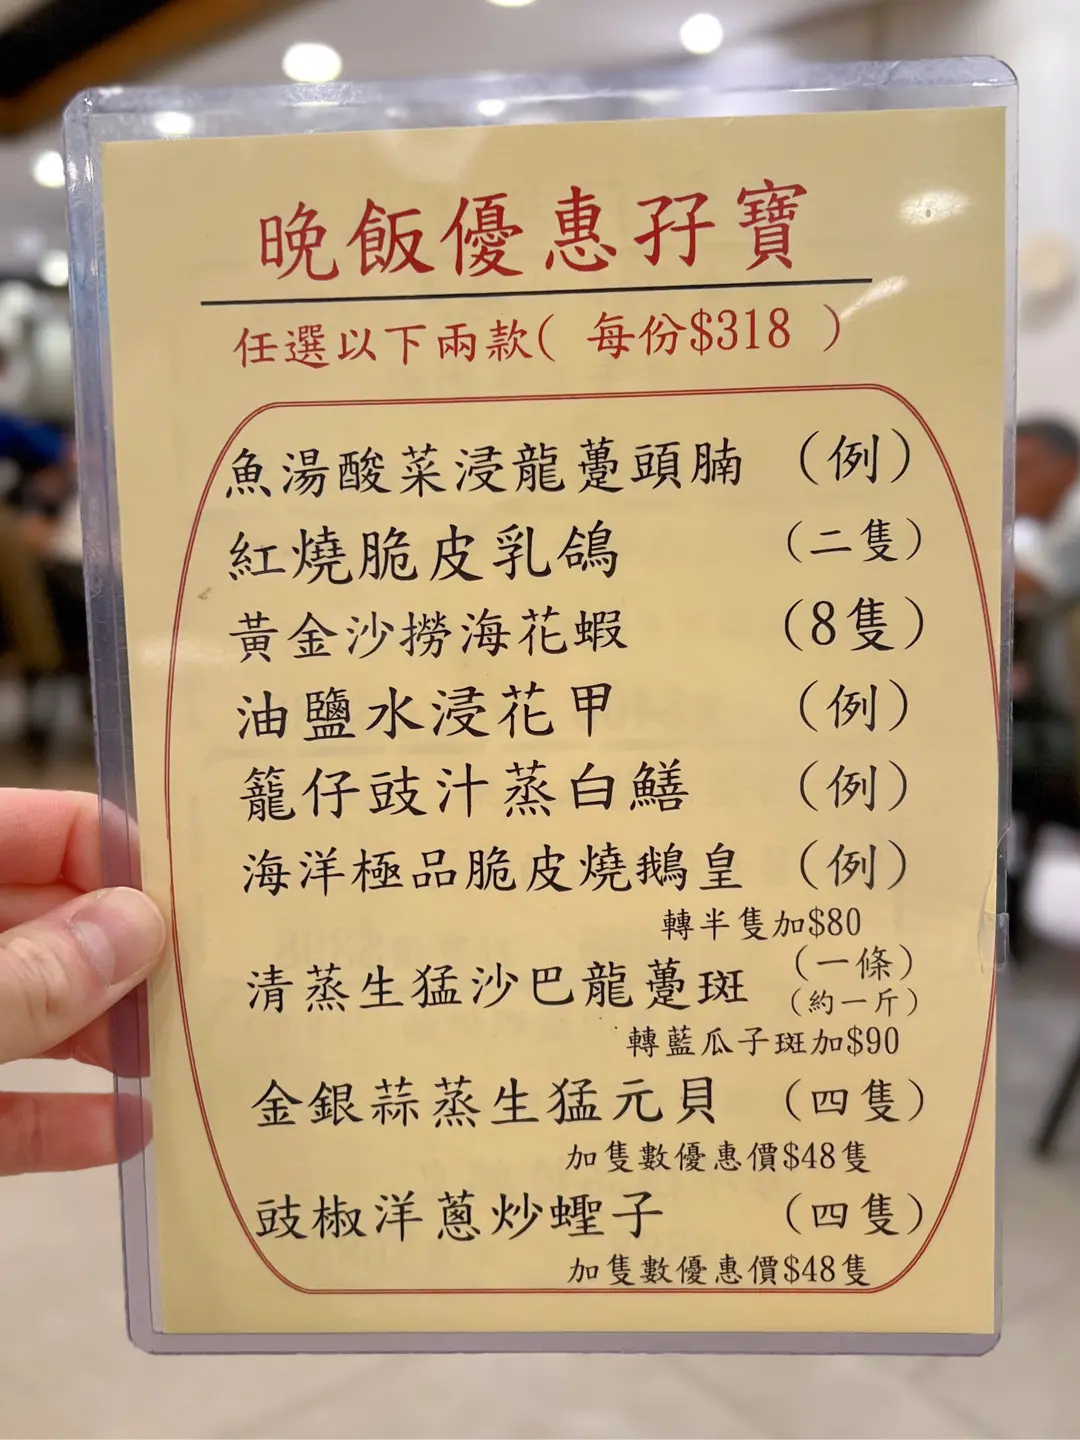 晚飯優惠孖寶
任選以下兩款( 每份$318 )
魚湯酸菜浸龍躉頭腩 (例)
紅燒脆皮乳鴿 (二隻)
黃金沙撈海花蝦 (8隻)
油鹽水浸花甲 (例)
籠仔豉汁蒸白鱔 (例)
海洋極品脆皮燒鵝皇 (例)
轉半隻加$80
清蒸生猛沙巴龍躉斑 (一條)
(約一斤)
轉藍瓜子斑加$90
金銀蒜蒸生猛元貝 (四隻)
加隻數優惠價$48隻
豉椒洋蔥炒蟶子 (四隻)
加隻數優惠價$48隻